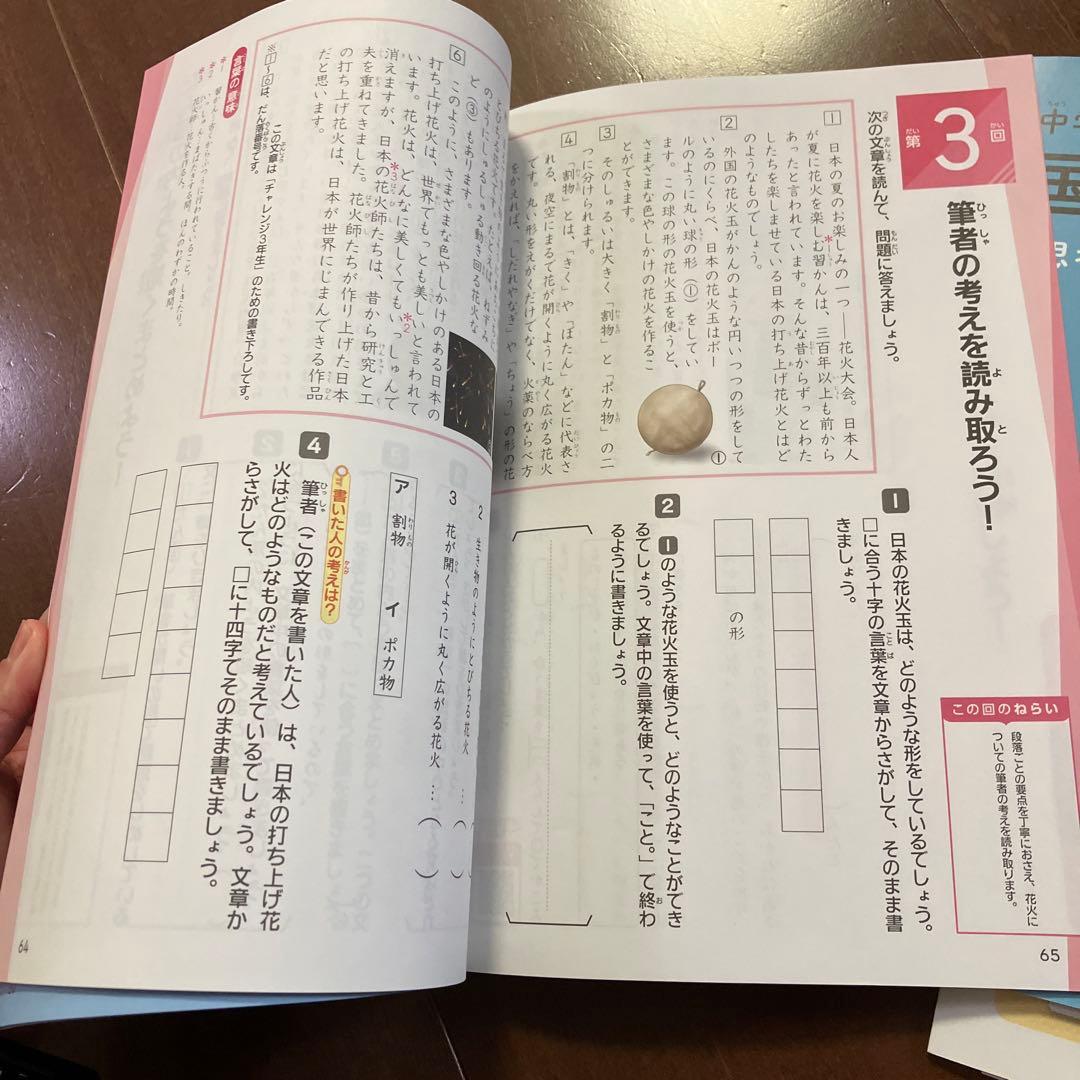 第3回
筆者の考えを読み取ろう！
次の文章を読んで、問題に答えましょう。
1 日本の夏のお楽しみの一つ――花火大会。日本人
が夏に花火を楽しむ習かんは、三百年以上も前から
あったと言われています。そんな昔からずっとわた
したちを楽しませている日本の打ち上げ花火とはど
のようなものでしょう。
2 外国の花火玉がかんのような円いつつの形をして
いるのにくらべ、日本の花火玉はボー
ルのように丸い球の形（①）をしてい
ます。この球の形の花火玉を使うと、
さまざまな色やしかけの花火を作るこ
とができます。
①
3 そのしゅるいは大きく「割物」と「ポカ物」の二
つに分けられます。
4 「割物」とは、「きく」や「ぼたん」などに代表さ
れる、夜空にまるで花が開くように丸く広がる花火
です。丸い形をえがくだけでなく、火薬のならべ方
をかえれば、「しだれやなぎ」や「ちょう」の形の花
とびちる花火です。たとえば、ねずみ
のようにしゅるしゅる動き回る花火な
ど（③）もあります。
6 このように、さまざまな色やしかけのある日本の
打ち上げ花火は、世界でもっとも美しいと言われて
います。花火は、どんなに美しくてもいっしゅんで
消えますが、日本の花火師たちは、昔から研究と工
夫を重ねてきました。花火師たちが作り上げた日本
の打ち上げ花火は、日本が世界にじまんできる作品
だと思います。
この文章は「チャレンジ3年生」のための書き下ろしです。
※1〜6は、だん落番号です。
言葉の意味
＊1 習かん…古くからふつうに行われていること。しきたり。
＊2 いっしゅん…まばたきする間。ほんのわずかの時間。
＊3 花火師…花火を作る人。
1 日本の花火玉は、どのような形をしているでしょう。
□に合う十字の言葉を文章からさがして、そのまま書
きましょう。
の形
2 1のような花火玉を使うと、どのようなことができ
るでしょう。文章中の言葉を使って、「こと。」で終わ
るように書きましょう。
2 生き物のようにとびちる花火 …（
3 花が開くように丸く広がる花火 …（ ）
ア 割物 イ ポカ物
書いた人の考えは？
4 筆者（この文章を書いた人）は、日本の打ち上げ花
火はどのようなものだと考えているでしょう。文章か
らさがして、□に十四字でそのまま書きましょう。
この回のねらい
段落ごとの要点を丁寧におさえ、花火に
ついての筆者の考えを読み取ります。
64
65